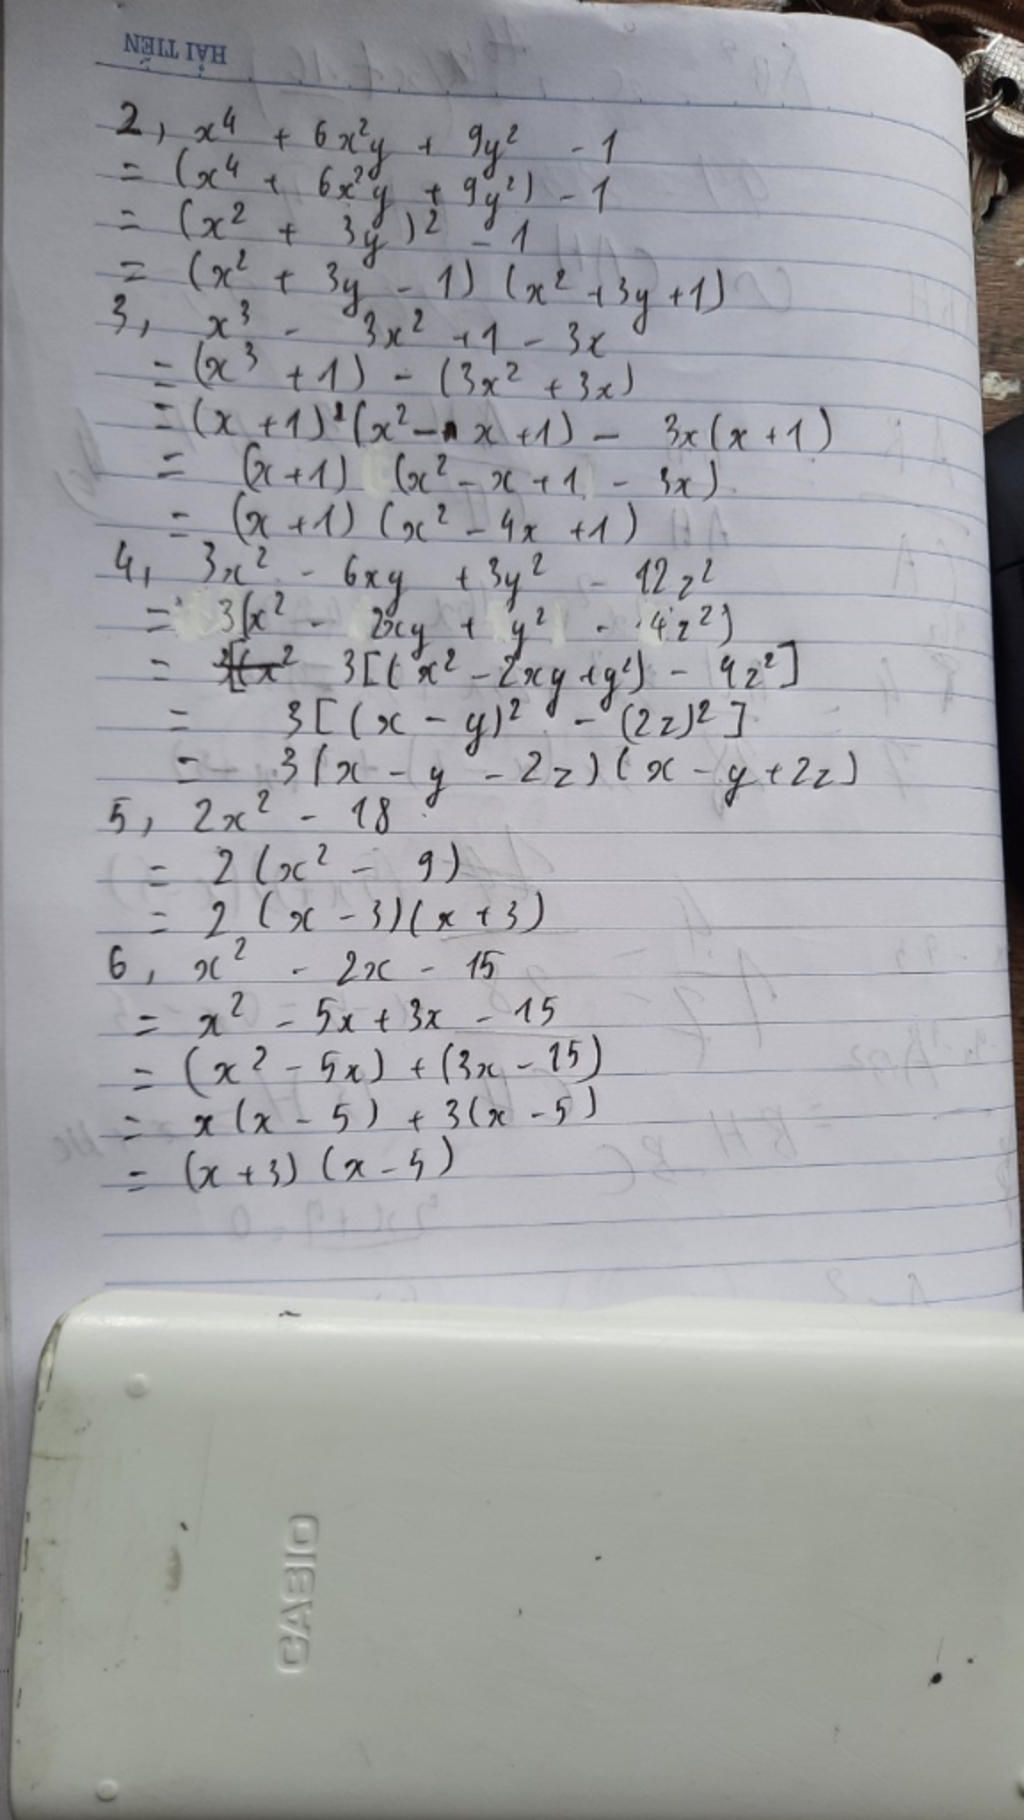 HẢI TIẾN
2, x⁴ + 6x²y + 9y² - 1
= (x⁴ + 6x²y + 9y²) - 1
= (x² + 3y)² - 1
= (x² + 3y - 1) (x² + 3y + 1)
3, x³ - 3x² + 1 - 3x
= (x³ + 1) - (3x² + 3x)
= (x + 1) (x² - x + 1) - 3x(x + 1)
= (x + 1) (x² - x + 1 - 3x)
= (x + 1) (x² - 4x + 1)
4, 3x² - 6xy + 3y² - 12z²
= 3(x² - 2xy + y² - 4z²)
= 3[(x² - 2xy + y²) - 4z²]
= 3[(x - y)² - (2z)²]
= 3(x - y - 2z)(x - y + 2z)
5, 2x² - 18
= 2(x² - 9)
= 2(x - 3)(x + 3)
6, x² - 2x - 15
= x² - 5x + 3x - 15
= (x² - 5x) + (3x - 15)
= x(x - 5) + 3(x - 5)
= (x + 3) (x - 5)
CABIO